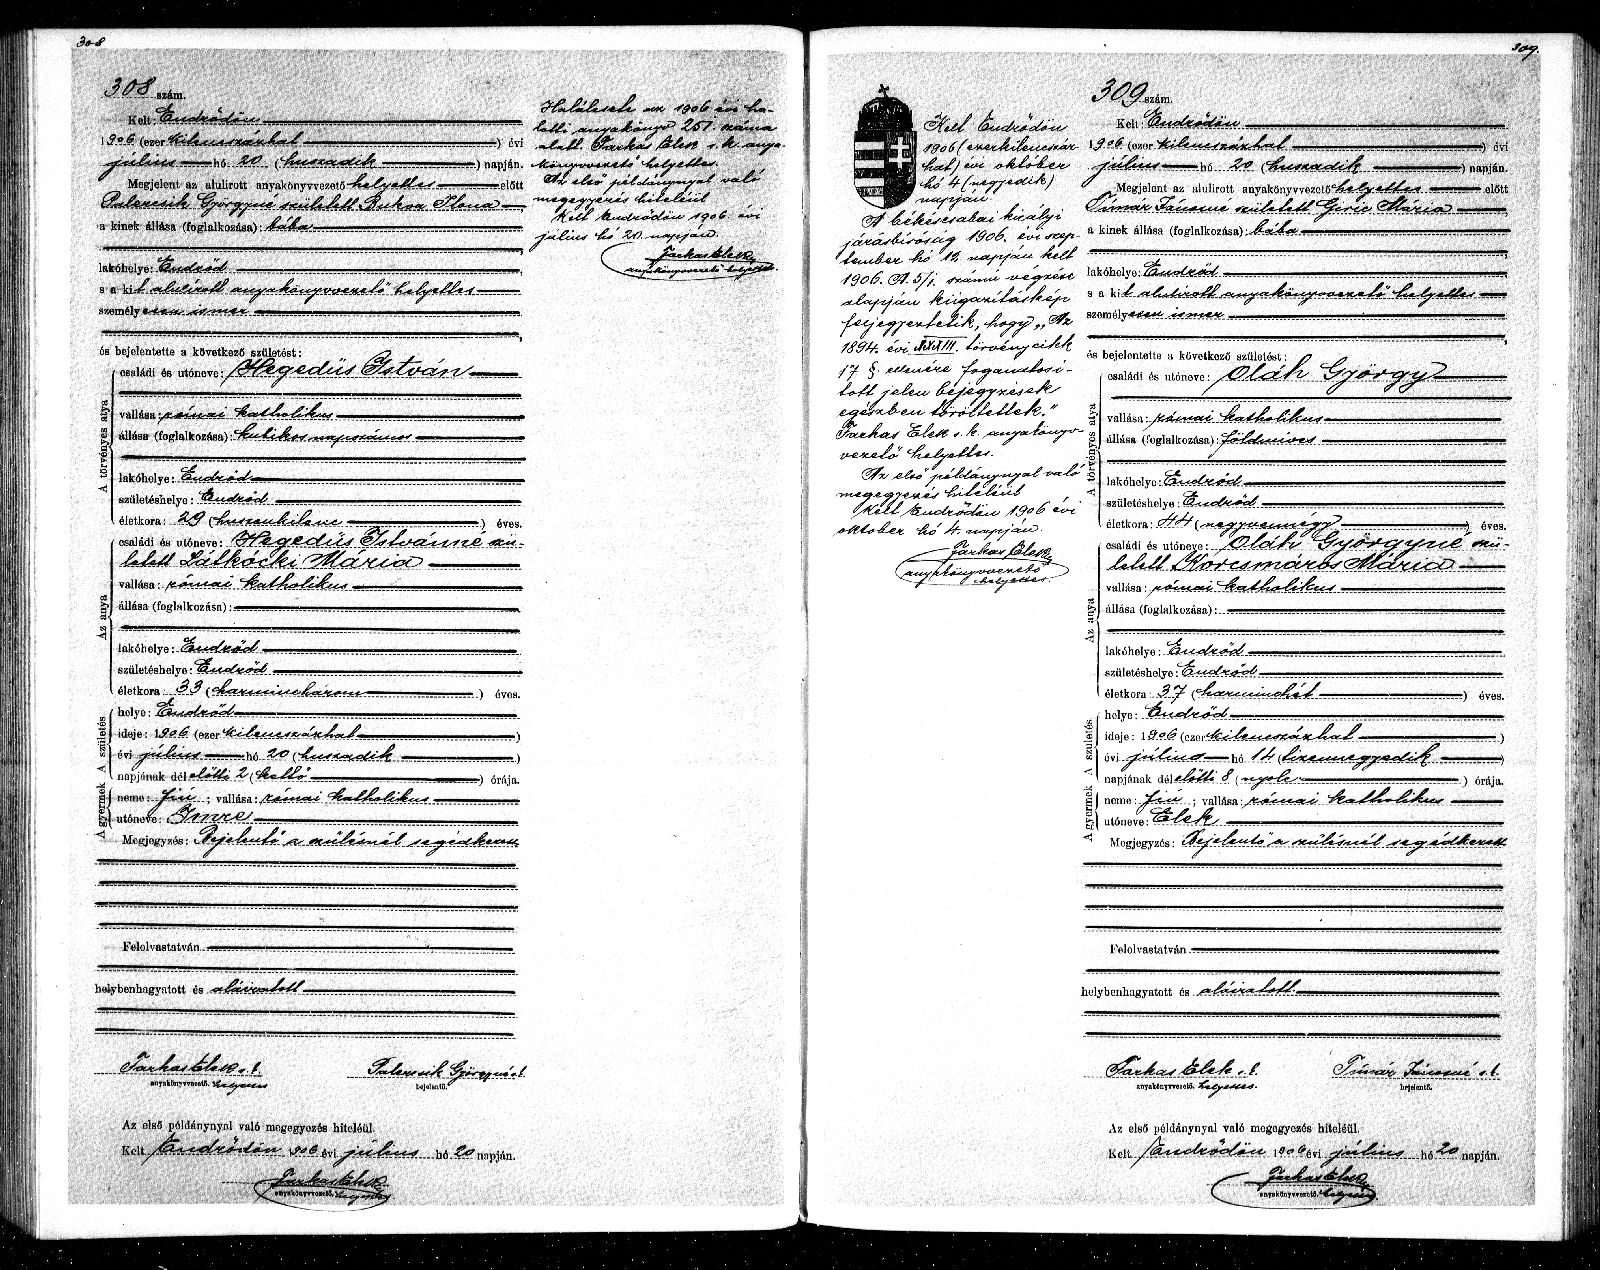 308
308 szám.
Kelt Endrődön
1906 (ezerkilencszázhat) évi
július hó 20 (huszadik) napján.
Megjelent az alulirott anyakönyvvezető helyettes előtt
Györgyné született Buksa Ilona
a kinek állása (foglalkozása): bába
lakóhelye: Endrőd
s a kit alulirott anyakönyvvezető helyettes
személyesen ismer
és bejelentette a következő születést:
A törvényes atya
családi és utóneve: Hegedüs István
vallása: római katholikus
állása (foglalkozása): kubikos napszámos
lakóhelye: Endrőd
születéshelye: Endrőd
életkora: 29 (huszonkilenc) éves.
Az anya
családi és utóneve: Hegedüs Istvánné szü-
letett Látkócki Mária
vallása: római katholikus
állása (foglalkozása):
lakóhelye: Endrőd
születéshelye: Endrőd
életkora 33 (harminchárom) éves.
A születés
helye: Endrőd
ideje: 1906 (ezerkilencszázhat)
évi július hó 20 (huszadik)
napjának délelőtti 2 (kettő) órája.
A gyermek
neme: fiú; vallása: római katholikus
utóneve: Imre
Megjegyzés: Bejelentő a szülésnél segédkezett
Felolvastatván
helybenhagyatott és aláiratott
Farkas Elek s. k. Györgyné s. k.
anyakönyvvezető. helyettes bejelentő.
Az első példánynyal való megegyezés hiteléül.
Kelt Endrődön 1906 évi július hó 20 napján.
Farkas Elek
anyakönyvvezető. helyettes
Halálesete az 1906 évi ha-
lotti anyakönyv 251. száma
alatt. Farkas Elek s. k. anya-
könyvvezető helyettes.
Az első példánynyal való
megegyezés hiteléül
Kelt Endrődön 1906 évi
július hó 20 napján.
Farkas Elek
anyakönyvvezető helyettes
309.
Kelt Endrődön
1906 (ezerkilencszáz-
hat) évi október
hó 4 (negyedik)
napján.
A békéscsabai királyi
járásbíróság 1906. évi szep-
tember hó 12. napján kelt
1906. A. 5/1. számú végzése
alapján kiigazításkép
feljegyeztetik, hogy „Az
1894. évi XXXIII. törvénycikk
17 § ellenére foganatosí-
tott jelen bejegyzések
egészben töröltettek."
Farkas Elek s. k. anyakönyv-
vezető helyettes.
Az első példánynyal való
megegyezés hiteléül
Kelt Endrődön 1906 évi
október hó 4. napján.
Farkas Elek
anyakönyvvezető
helyettes
309 szám.
Kelt: Endrődön
1906 (ezerkilencszázhat) évi
július hó 20 (huszadik) napján.
Megjelent az alulirott anyakönyvvezető helyettes előtt
Tímár Jánosné született Mária
a kinek állása (foglalkozása): bába
lakóhelye: Endrőd
s a kit alulirott anyakönyvvezető helyettes
személyesen ismer
és bejelentette a következő születést:
A törvényes atya
családi és utóneve: Oláh György
vallása: római katholikus
állása (foglalkozása): földmíves
lakóhelye: Endrőd
születéshelye: Endrőd
életkora: 44 (negyvennégy) éves.
Az anya
családi és utóneve: Oláh Györgyné szü-
letett Korcsmáros Mária
vallása: római katholikus
állása (foglalkozása):
lakóhelye: Endrőd
születéshelye: Endrőd
életkora: 37 (harminchét) éves.
A születés
helye: Endrőd
ideje: 1906 (ezerkilencszázhat)
évi július hó 14 (tizennegyedik)
napjának délelőtti 8 (nyolc) órája.
A gyermek
neme: fiú; vallása: római katholikus
utóneve: Elek
Megjegyzés: Bejelentő a szülésnél segédkezett
Felolvastatván
helybenhagyatott és aláiratott
Farkas Elek s. k. Tímár Jánosné s. k.
anyakönyvvezető. helyettes bejelentő.
Az első példánynyal való megegyezés hiteléül.
Kelt Endrődön 1906 évi július hó 20 napján.
Farkas Elek
anyakönyvvezető. helyettes